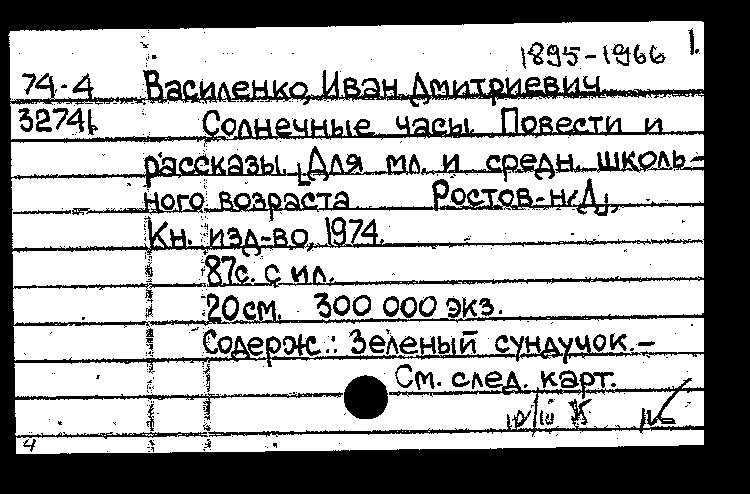 1895-1966 1.
74-4 Василенко, Иван Дмитриевич
32741 Солнечные часы. Повести и
рассказы. [Для мл. и средн. школь-
ного возраста Ростов-н/Д],
Кн. изд-во, 1974.
87с. с ил.
20см. 300 000 экз.
Содерж.: Зеленый сундучок.-
См. след. карт.
4